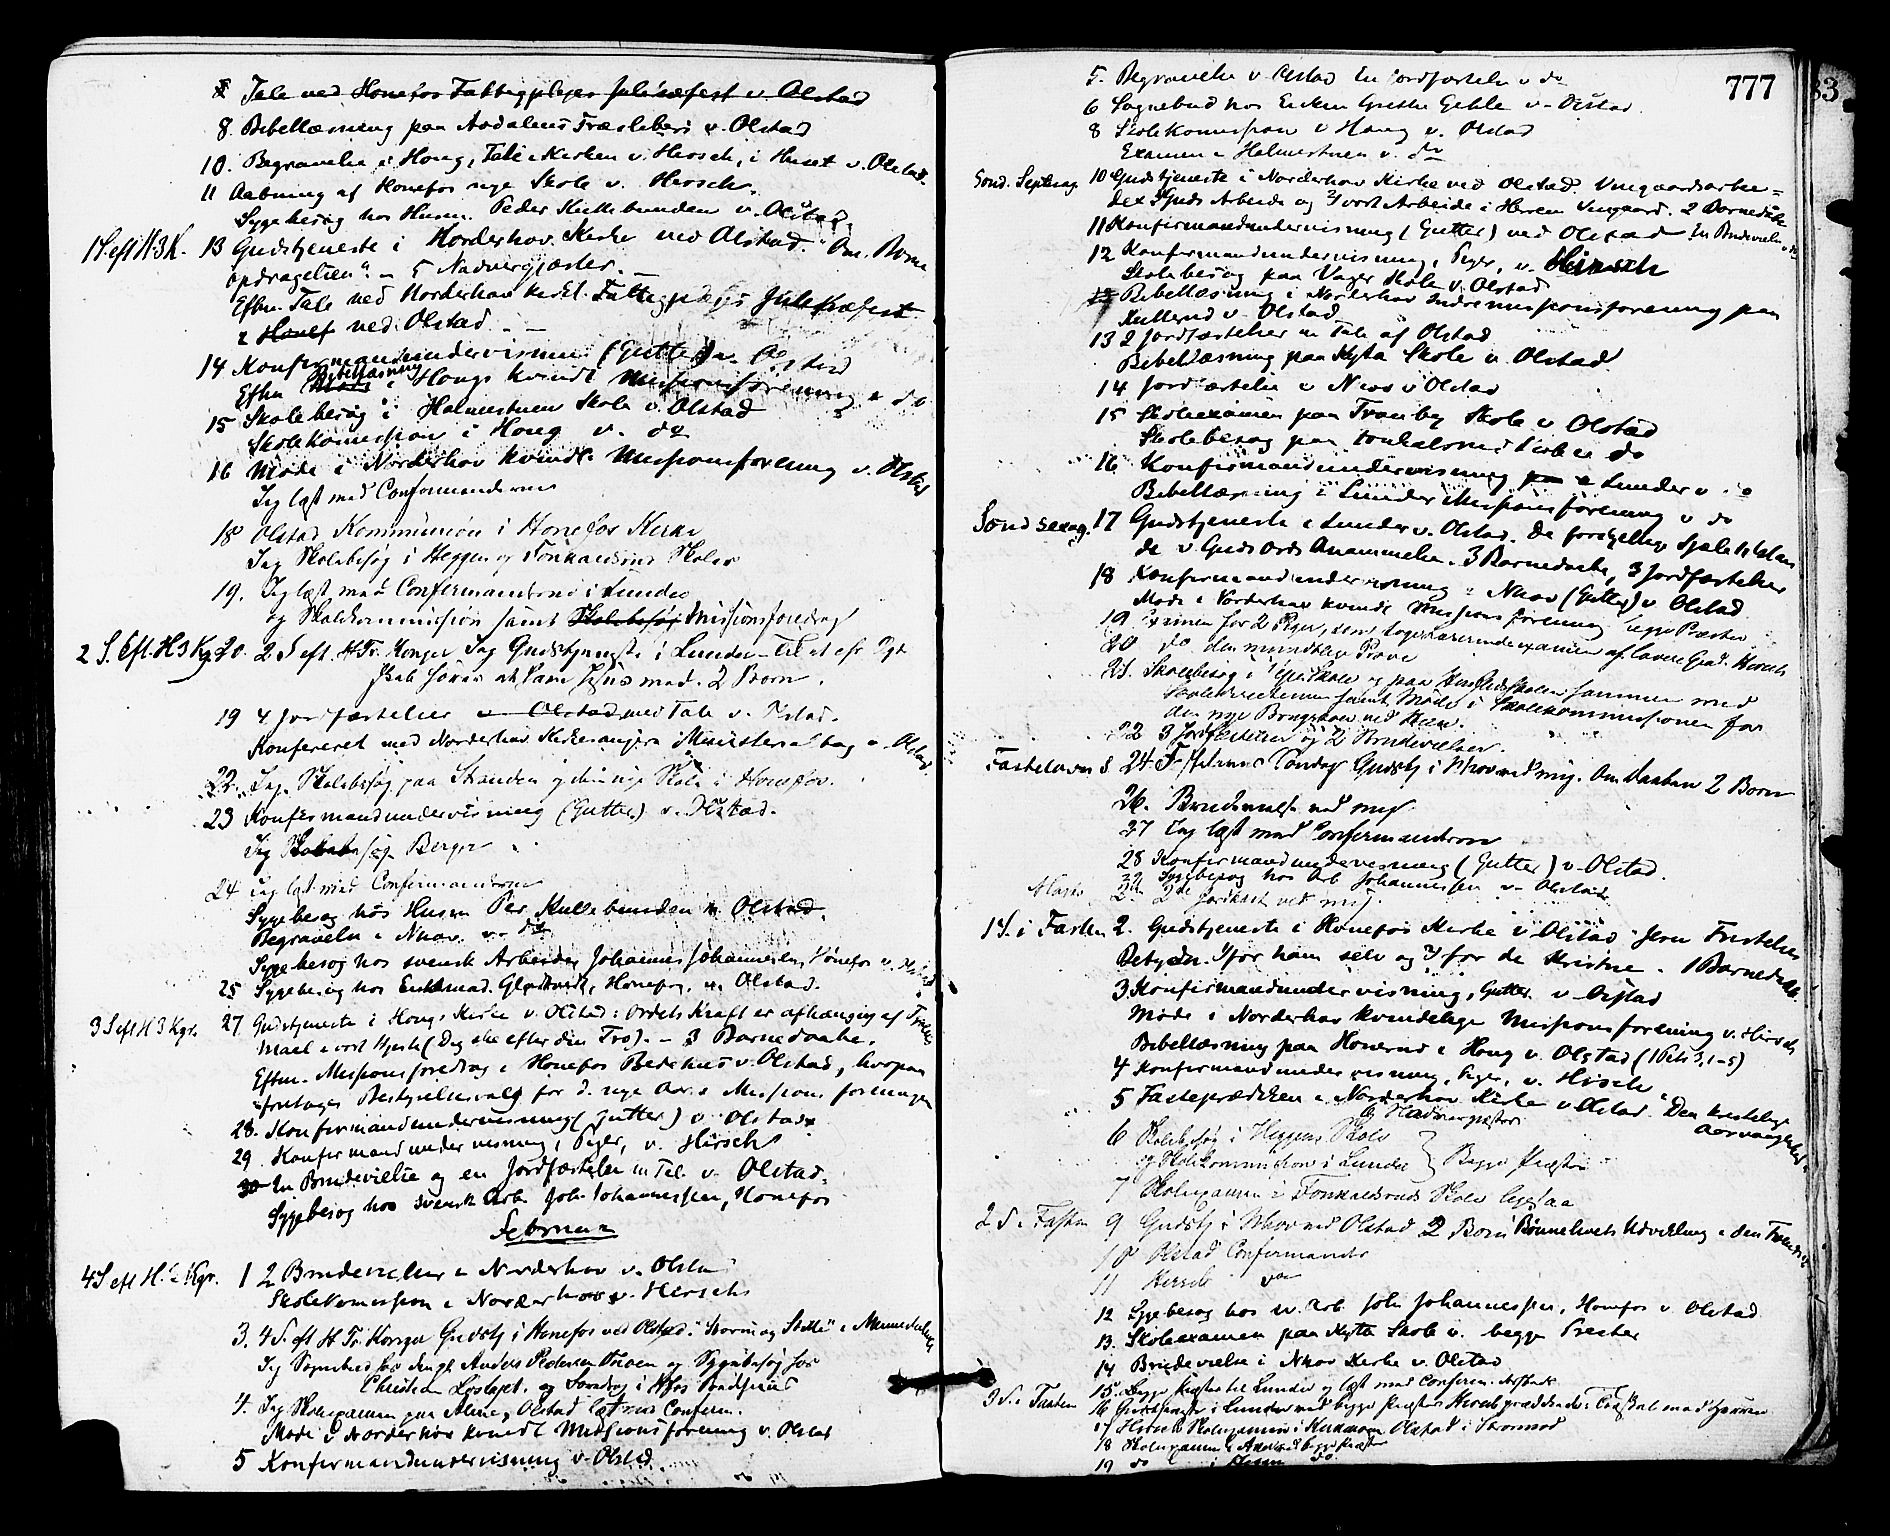 Tale ved Hønefos Fattigplejes Juletræfest v. Olstad
8. Bibellæsning paa Aadalens Træsliberi v. Olstad
10. Begravelse i Houg, Tale i Kirken v. Hirsch, i Huset v. Olstad.
11 Aabning af Hønefos nye Skole v. Hirsch.
Sygebesøg hos Husm. Peder Kullebunden v. Olstad.
1 S. eft H3K. 13 Gudstjeneste i Norderhov Kirke ved Olstad. "Om Børne
opdragelsen". - 5 Nadvergjæster. -
Eftm. Tale ved Norderhov Fattigplejes Juletræfest
ved Olstad
14 Konfirmandundervisning (Gutter) v. Olstad
Eftm Bibellæsning i Hougs kvindl Missionsforening v do
15 Skolebesøg i Halmestuen Skole v. Olstad
Skolekomission i Houg v. do
16 Møde i Norderhov kvindl. Missionsforening v. Olstad
Jeg læst med Confirmanderne
18 Olstad Kommunion i Hønefos Kirke
Jeg Skolebesøg i Heggen og Tonkalsrud Skoler
19. Jeg læst med Confirmanderne i Lunder
og Skolekommission samt Skolebesøg Missionsforedrag
2 S. Eft. H3Kg. 20. 2 S eft. H Tr. Konger Jeg Gudstjeneste i Lunder
2 Børn.
19 4 Jordfæstelser v Olstad med Tale v. Olstad.
Konfereret med Norderhov Kirkesangers Ministerialbog v. Olstad
22. Jeg Skolebesøg paa Stranden og den nye Skole i Hønefos.
23 Konfirmandundervisning (Gutter) v. Olstad.
Jeg Skolebesøg Berger
24 Jeg læst med Confirmanderne
Sygebesøg hos Husm Per Kullebunden v Olstad.
Begravelse i Nhov. v. do
Sygebesøg hos svensk Arbeider Johannes Johannessen, Hønefos v. Olstad
25 Sygebesøg hos Enkemad. Hønefos, v. Olstad.
3 S eft H 3 Kgr. 27. Gudstjeneste i Houg Kirke v. Olstad: Ordets Kraft er afhængig af Troens
Maal i vort Hjerte (Dig ske efter din Tro). - 3 Barnedaabe.
Eftm. Missionsforedrag i Hønefos Bedehus v. Olstad, hvorpaa
foretoges Bestyrelsesvalg for d. nye Aar i Missionsforeningen
28. Konfirmandundervisning (Gutter) v. Olstad
29. Konfirmandundervisning, Piger, v. Hirsch
30 En Brudevielse og en Jordfæstelse m Tale v. Olstad.
Sygebesøg hos svensk Arb. Joh. Johannessen, Hønefos
Februar
4 S eft H. 3 Kgr. 1 2 Brudevielser i Norderhov v. Olstad
Skolekomission i Norderhov v. Hirsch
3. 4 S. eft H Tr. Konger Gudstj i Hønefos ved Olstad. "Storm og Stille" i Menneskelivet
Jeg Sognebud hos Anders Pedersen og Sygebesøg hos
Christian og Foredrag i Hfos
4. Jeg Skolexamen paa Alme, Olstad læst med Confirm.
Møde i Norderhov kvindl Missionsforening v. Olstad
5 Konfirmandundervisning v. Olstad.
777
83
5. Begravelse v. Olstad En Jordfæstelse v do
6 Sognebud hos Enken Grethe Gehle v. Olstad.
8 Skolekomission i Houg v. Olstad
Examen i Halmestuen v. do
Sond. Septuag. 10 Gudstjeneste i Norderhov Kirke ved Olstad. Vingaardsarbei=
det Guds Arbeide og vort Arbeide i Herren Vingaard. 2 Barnedaabe
11 Konfirmandundervisning (Gutter) ved Olstad En Brudevielse v do
12 Konfirmandundervisning, Piger, v. Hirsch
Skolebesøg paa Vager Skole v. Olstad
Bibellæsning i Norderhov Indremissionsforening paa
Kullerud v. Olstad
13 2 Jordfæstelser m Tale af Olstad
Bibellæsning paa Hyta Skole v. Olstad
14 Jordfæstelse i Nhov v Olstad
15 Skoleexamen paa Tranby Skole v Olstad
Skolebesøg paa Tonkalsrud Skole v do
16 Konfirmandundervisning paa i Lunder v do
Bibellæsning i Lunder Missionsforening v do
Sønd sexag. 17 Gudstjeneste i Lunder v. Olstad. De forskjellige Sjæletilstan
de v. Guds Ords Anammelse. 3 Barnedaabe, 3 Jordfæstelser
18 Konfirmandundervisning i Nhov (Gutter) v Olstad
Møde i Norderhov kvindl Missionsforening begge Præster
19 Examen for 2 Piger, som tage Lærerindeexamen af lavere Grad. Hirsch
20 do den mundtlige Prøve
21. Skolebesøg i Skole og paa sammen med
samt Møde i Skolekommissionen for
den nye Brugsskole ved Viul.
22 3 Jordfæstelser og 2 Brudevielser.
Fastelavns S 24. Fastelavns Søndag Gudstj i Nhov ved mig. Om Daaben 2 Børn
26. Brudevielse ved mig
27 Jeg læst med Confirmanderne
28 Konfirmandundervisning (Gutter) v. Olstad.
Sygebesøg hos Arb Johannessen v. Olstad
Marts
1 S. i Fasten 2. Gudstjeneste i Hønefos Kirke v Olstad "Jesu Fristelses
Betydn. 1) for ham selv og 2) for de Kristne. 1 Barnedaab.
3 Konfirmandundervisning, Gutter. v. Olstad
Møde i Norderhov kvindelige Missionsforening v. Hirsch
Bibellæsning paa Hønerud i Houg v. Olstad (1 Pet. 3, 1-5)
4 Konfirmandundervisning, Piger, v. Hirsch
5 Fasteprædiken i Norderhov Kirke v Olstad. "Den kristelige
Aarvaagenhed"
6 Nadvergjæster
6 Skolebesøg i Heggens Skole
og Skolekommission i Lunder } Begge Præster
7 Skolexamen i Tonkalsruds Skole ligesaa
2 S. i Fasten 9 Gudstj i Nhov ved Olstad 2 Børn Bønnelivets Udvikling i den Troende
10 Olstad Confirmander
11 Hirsch do
12 Sygebesøg hos sv. Arb. Joh. Johannessen, Hønefos v Olstad
13. Skoleexamen paa Hyta Skole v. begge Prester
14 Brudevielse i Nhov Kirke v. Olstad
15. Begge Præster til Lunder og læst med Confirm.
3 S. i Fasten 16 Gudstjeneste i Lunder ved begge Præster Hirsch prædikede:
17 Hirsch Skolexamen i Olstad i
18 Skolexamen i ved begge Præster
19 do i do